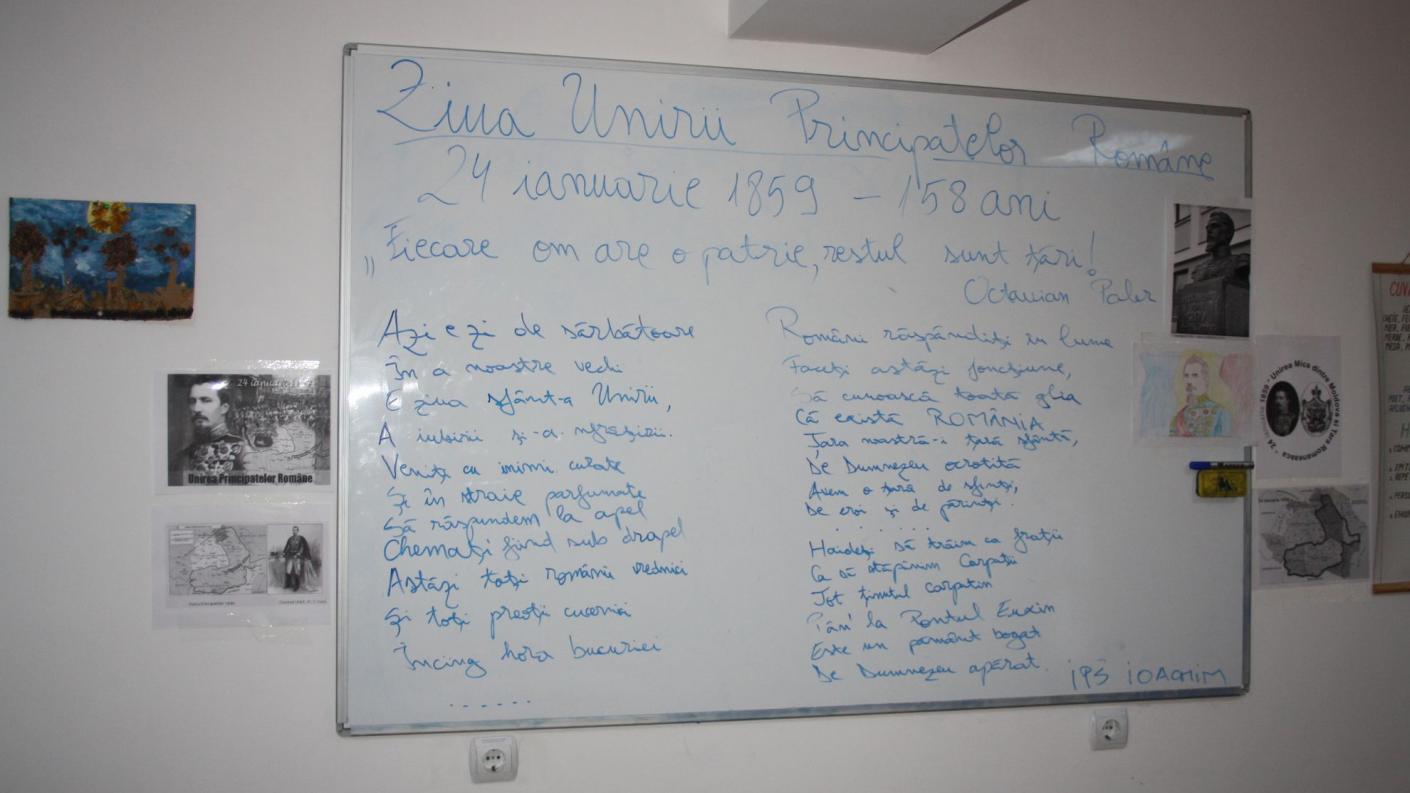 Ziua Unirii Principatelor Române
24 ianuarie 1859 – 158 ani
„Fiecare om are o patrie, restul sunt țări!
Octavian Paler
Azi e zi de sărbătoare
În a noastre vechi
E ziua sfânt-a Unirii,
A iubirii și-a nfrățirii.
Veniți cu inimi curate
Și în straie parfumate
Să răspundem la apel
Chemați fiind sub drapel
Astăzi toți românii vrednici
Și toți preoți cucernici
Încing hora bucuriei
. . . . . .
Români răspândiți în lume
Faceți astăzi joncțiune,
Să cunoască toată glia
Că există ROMÂNIA
Țara noastră-i țară sfântă,
De Dumnezeu ocrotită
Avem o țară de sfinți,
De eroi și de părinți.
. . . . . . .
Haideți să trăim ca frații
Ca să stăpânim Carpații
Tot ținutul carpatin
Pân' la Pontul Euxin
Este un pământ bogat
De Dumnezeu apărat.
IPS IOACHIM
24 ianuarie
Unirea Principatelor Române
24 ianuarie 1859 - Unirea Mica dintre Moldova si Tara Romaneasca
CUV